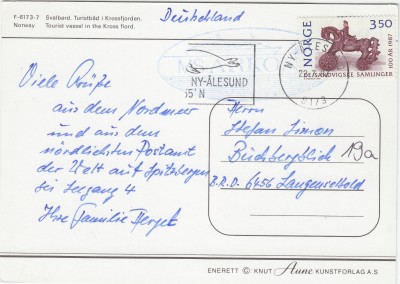 F-6173-7 Svalbard. Turistbåd i Krossfjorden.
Norway Tourist vessel in the Kross fiord.
Deutschland
NORGE 350
100 ÅR 1987
DE SANDVIGSKE SAMLINGER
NY-ÅLESUND
N
9173
Viele Grüße
aus dem Nordmeer
und aus dem
nördlichsten Postamt
der Welt auf Spitzbergen
bei Seegang 4
Ihre Familie
Herrn
Stefan Simon
Büchbergblick 19a
B.R.D. 6456 Langenselbold
ENERETT © KNUT Aune KUNSTFORLAG A.S